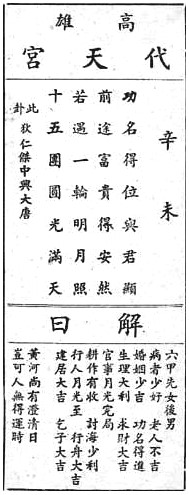 高雄
代天宮
辛未
功名得位與君顯
前途富貴得安然
若遇一輪明月照
十五團圓光滿天
此卦 狄仁傑中興大唐
解曰
六甲先女後男
病者少好 老人不吉
婚姻少吉 功名得進
生理大利 求財大吉
官事月光完局
耕作有收 討海少利
行人月光至 行舟大吉
建居大吉 乞子大吉
黃河尚有澄清日
豈可人無得運時